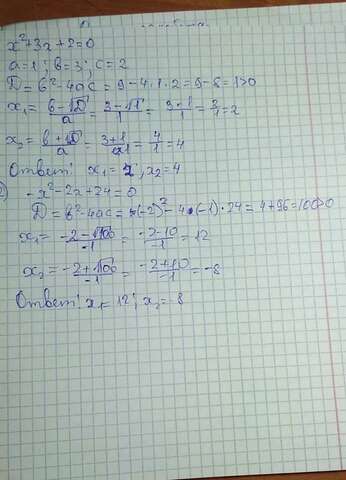 x²+3x+2=0
a=1; b=3; c=2
D=b²-4ac=9-4·1·2=9-8=1>0
x₁= (b-√D)/a = (3-√1)/1 = (3-1)/1 = 2/1 = 2
x₂= (b+√D)/a = (3+1)/1 = 4/1 = 4
Ответ: x₁=2, x₂=4
) -x²-2x+24=0
D=b²-4ac=(-2)²-4·(-1)·24=4+96=100>0
x₁= (-2-√100)/-1 = (-2-10)/-1 = 12
x₂= (-2+√100)/-1 = (-2+10)/-1 = -8
Ответ: x₁=12; x₂=-8